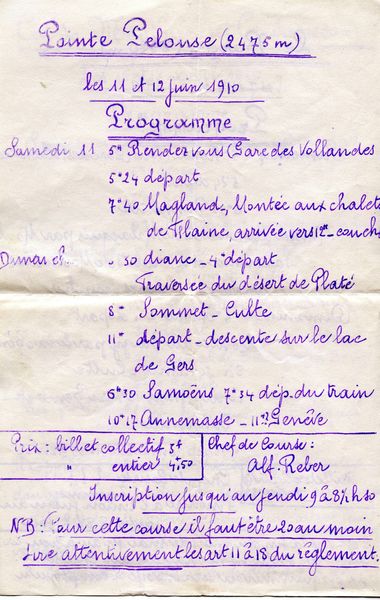 Pointe Pelouse (2475 m)
les 11 et 12 juin 1910
Programme
Samedi 11 5h Rendez vous (Gare des Vollandes
5h24 départ
7h40 Magland, Montée aux chalets
de Flaine, arrivée vers 12h - couch
Dimanch. 30 diane - 4h départ
Traversée du désert de Platé
8h Sommet - Culte
11h départ - descente sur le lac
de Gers
6h30 Samoëns 7h34 dép. du train
10h17 Annemasse - 11h Genève
Prix: billet collectif 3f
" entier 4.50
Chef de Course:
Alf. Reber
Inscription jusqu'au jeudi 9 à 8¾ h 30
NB: Pour cette course il faut être 20 au moin
Lire attentivement les art 11 à 18 du réglement.